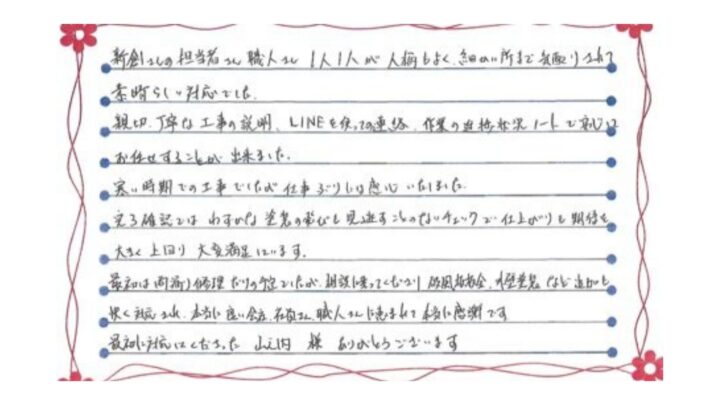 新創さんの担当者さん 職人さん 1人1人が 人柄もよく、細かい所まで気配りされて
素晴らしい対応でした。
親切、丁寧な工事の説明、LINEを使っての連絡、作業の進捗状況ノートで安心に
お任せすることが出来ました。
寒い時期での工事でしたが仕事ぶりには感心いたしました。
完了確認では わずかな塗装の も見逃すことのないチェックで仕上がりも期待を
大きく上回り 大変満足しています。
最初は雨漏り修理だけの予定でしたが、相談に乗ってくださり 外壁塗装など追加も
快く対応され、本当に良い会社、社員さん、職人さんに恵まれて本当に感謝です
最初に対応してくださった 山之内 様 ありがとうございます